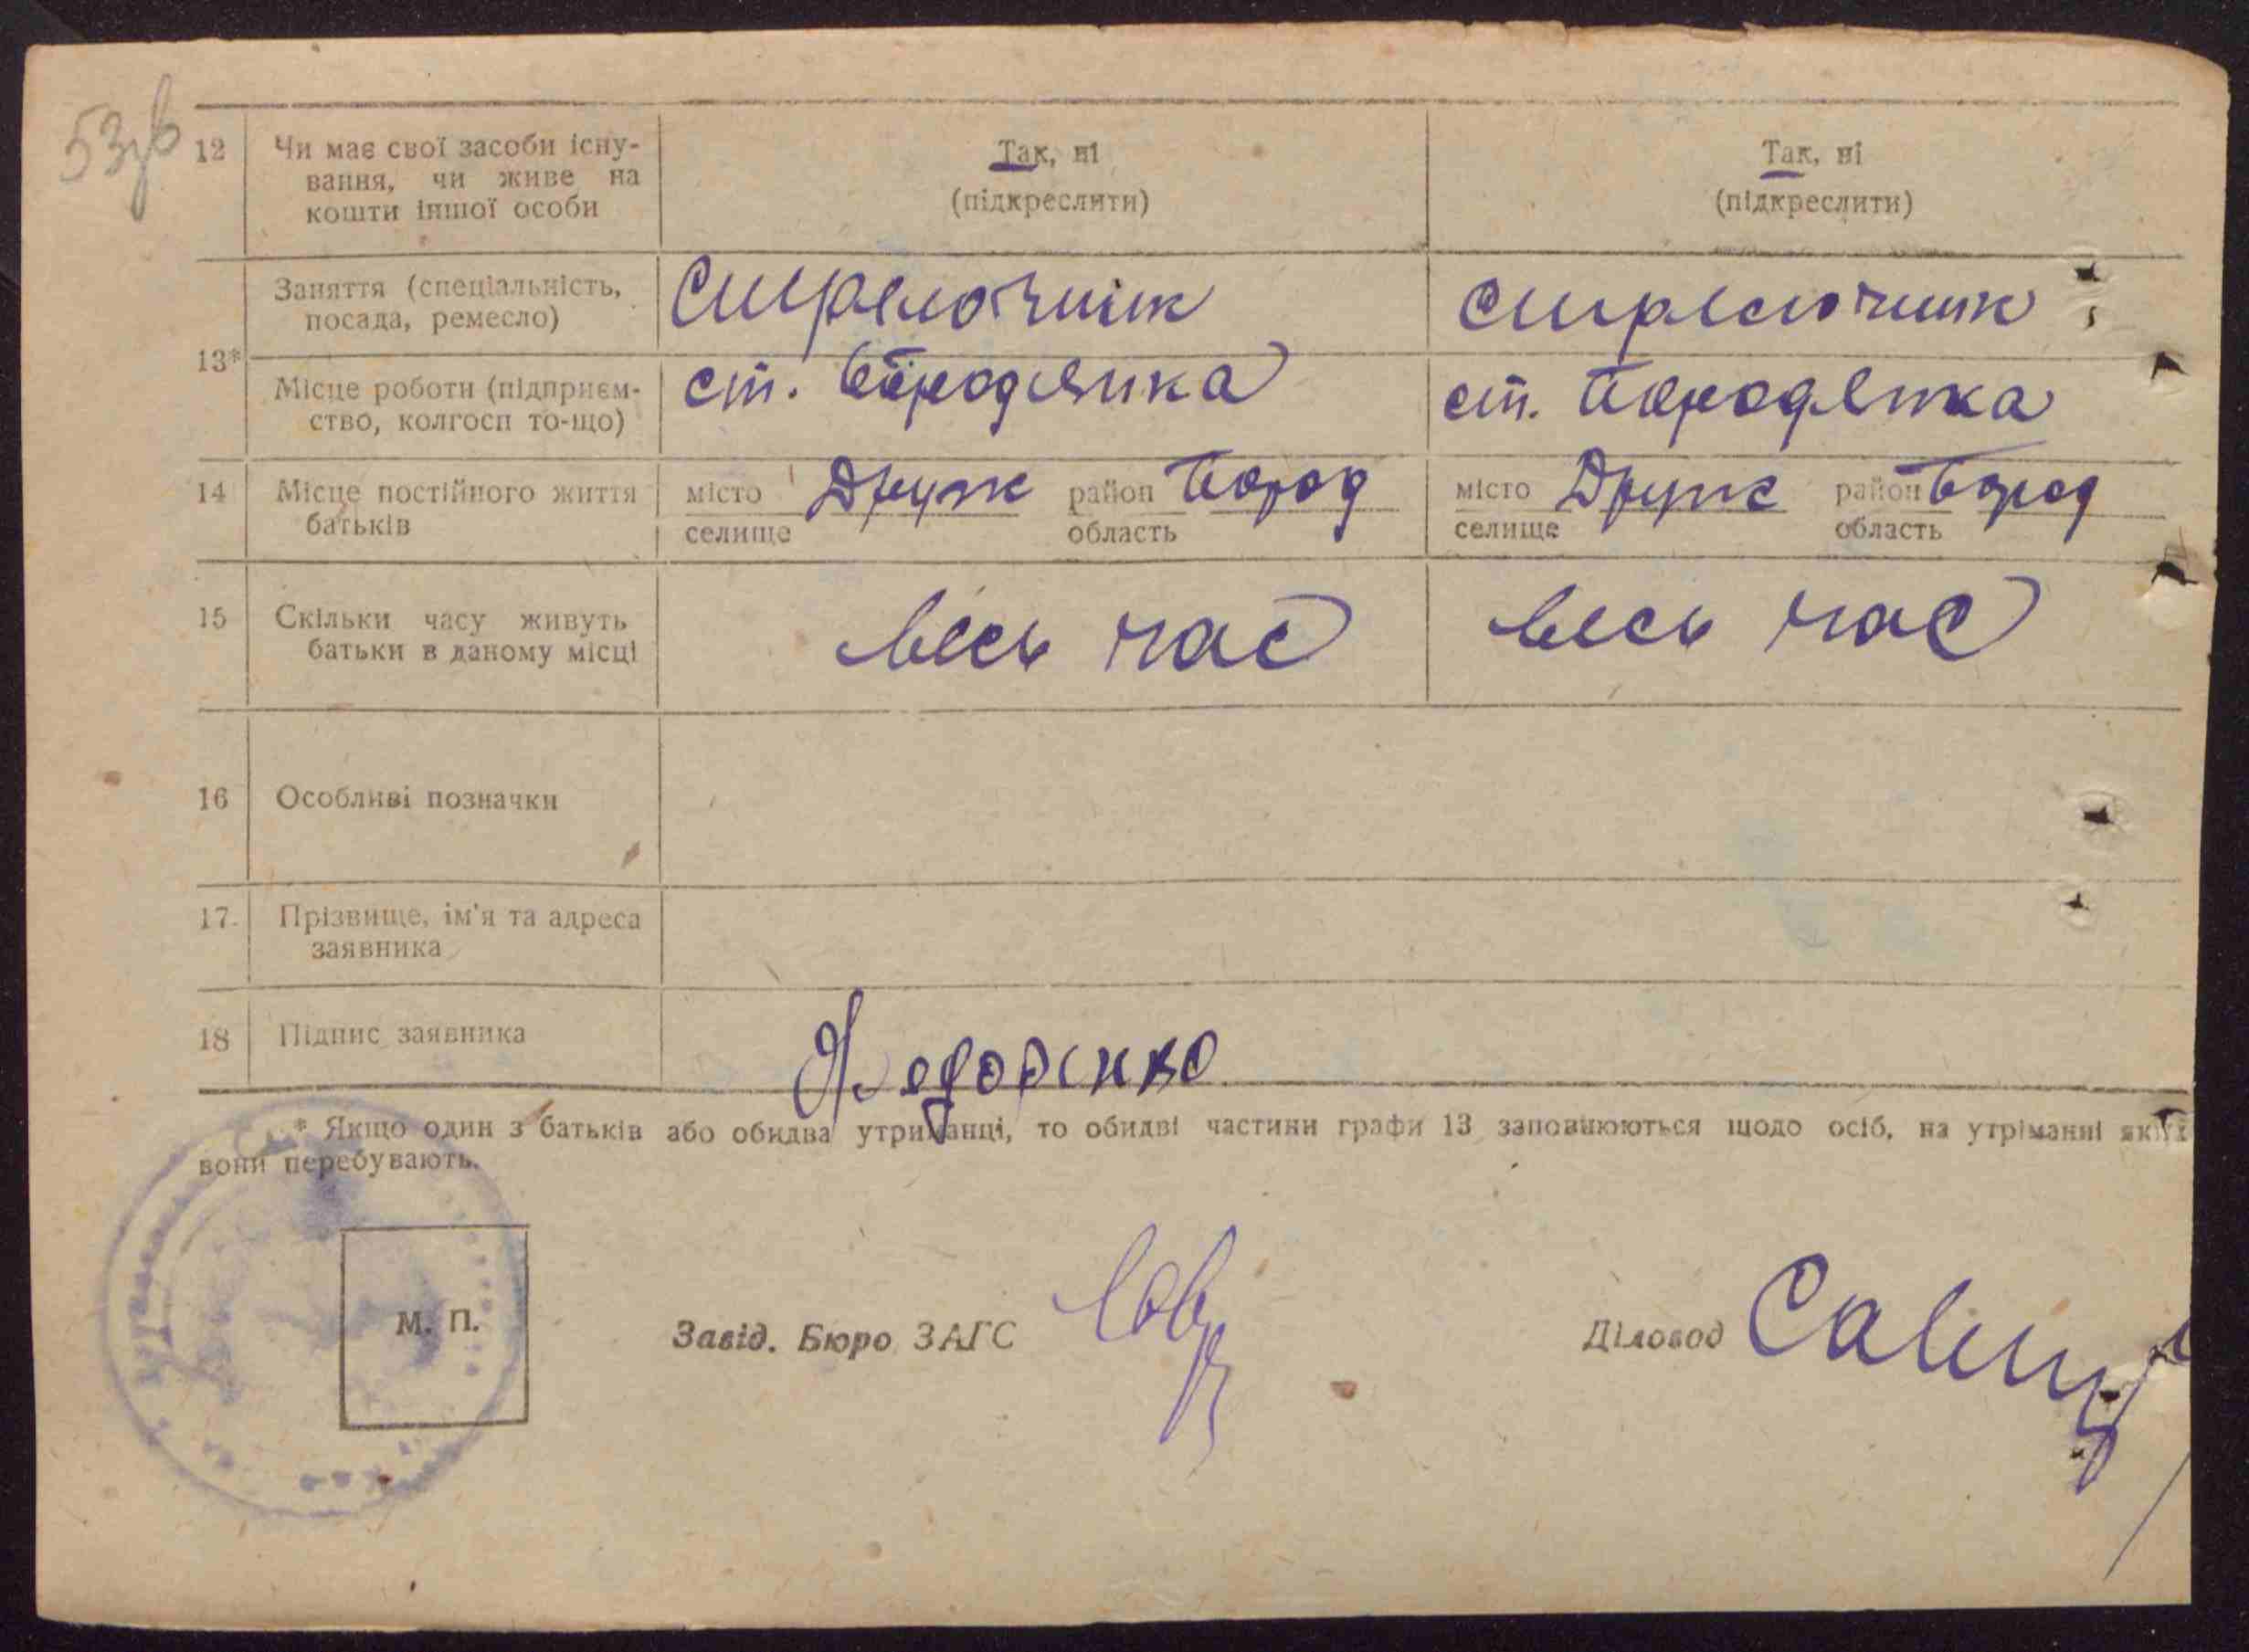 53зв
12 Чи має свої засоби існу- Так, ні Так, ні
вання, чи живе на (підкреслити) (підкреслити)
кошти іншої особи
Заняття (спеціальність, Стрелочник стрелочник
посада, ремесло)
13*
Місце роботи (підприєм- ст. Бородянка ст. Бородянка
ство, колгосп то-що)
14 Місце постійного життя місто Друж район Бород місто Друж район Бород
батьків селище область селище область
15 Скільки часу живуть весь час весь час
батьки в даному місці
16 Особливі позначки
17 Прізвище, ім'я та адреса
заявника
18 Підпис заявника Федоренко
* Якщо один з батьків або обидва утриманці, то обидві частини графи 13 заповнюються щодо осіб, на утріманні яких
вони перебувають.
М. П.
Завід. Бюро ЗАГС Діловод